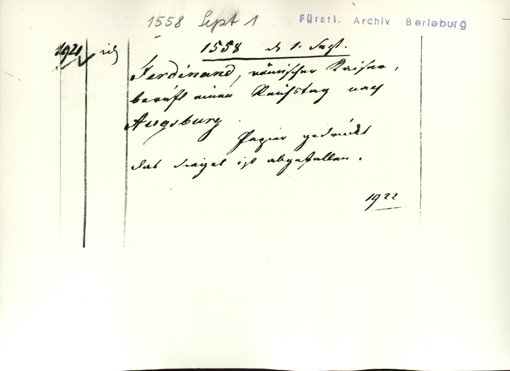 1558 Sept 1
Fürstl. Archiv Berleburg
1921
1558 d 1. Sept.
Ferdinand, römischer Kaiser,
beruft einen Reichstag nach
Augsburg.
Papier gedruckt
das Siegel ist abgefallen.
1922